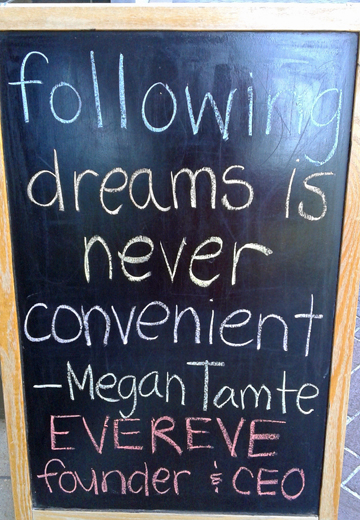 following
dreams is
never
convenient
-Megan Tamte
EVEREVE
founder & CEO